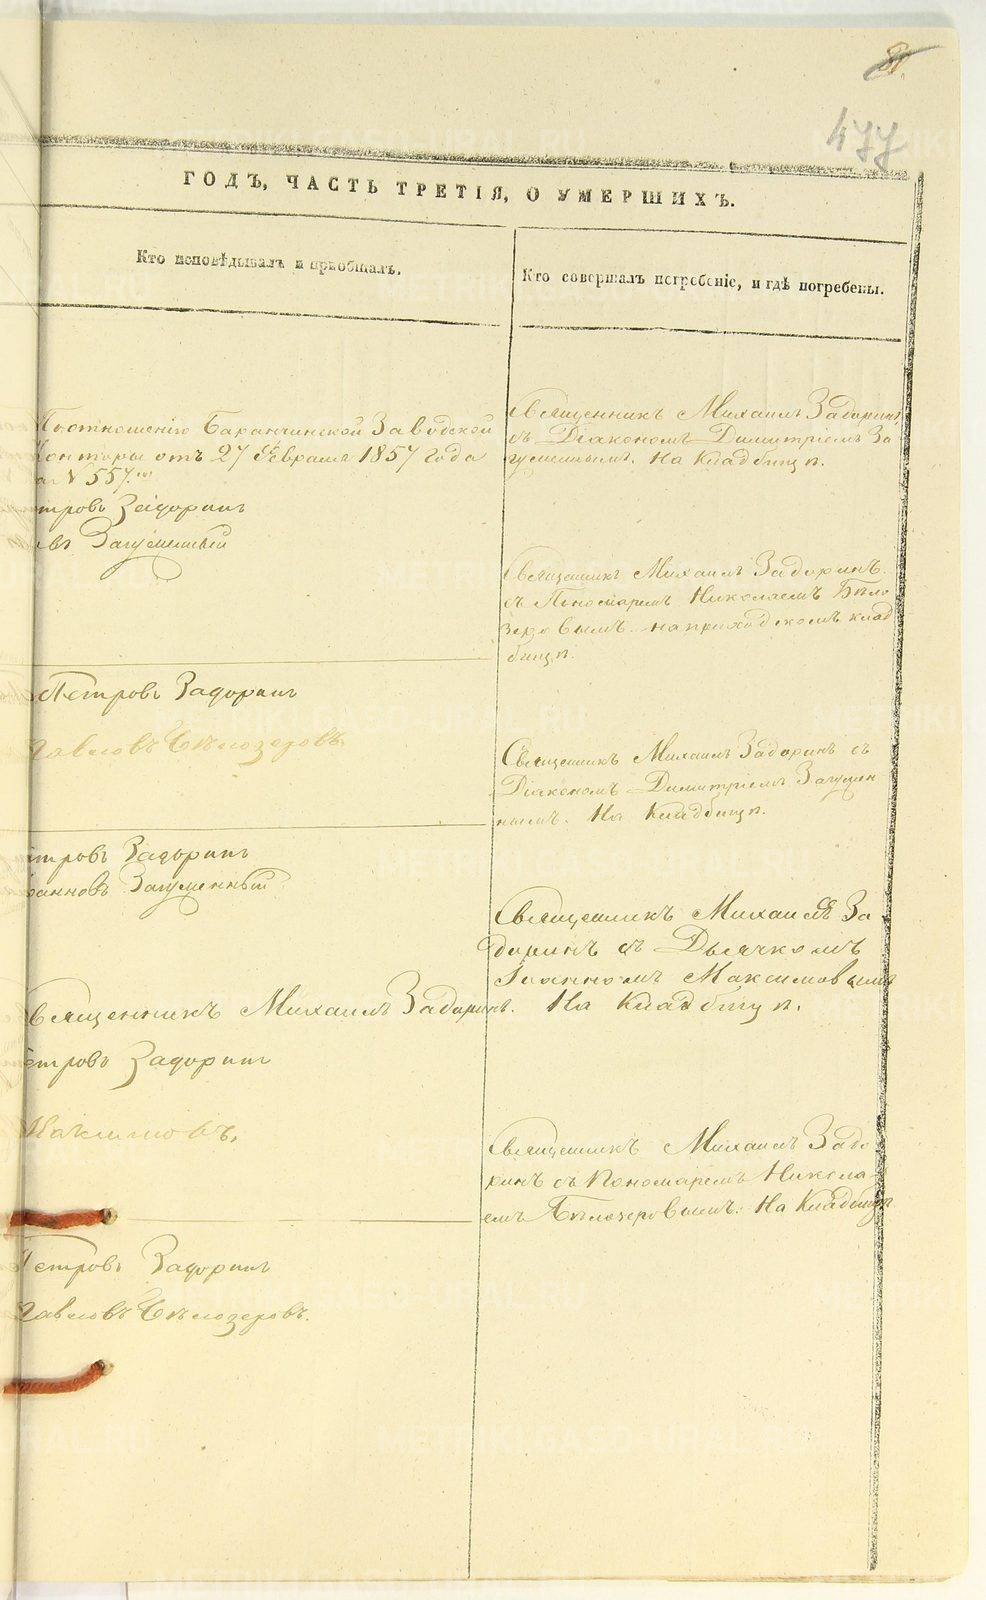 81.
477
ГОДЪ, ЧАСТЬ ТРЕТІЯ, О УМЕРШИХЪ.
Кто исповѣдывалъ и пріобщалъ.
Кто совершалъ погребеніе, и гдѣ погребены.
По отношенію Баранчинской Заводской
Конторы отъ 27 Февраля 1857 года
за N 557.
тровъ Задоринъ
въ Загуменный
Священникъ Михаилъ Задоринъ
съ Діакономъ Димитріемъ За
гуменнымъ. На Кладбищѣ.
Священникъ Михаилъ Задоринъ
съ Пономаремъ Николаемъ Бѣло
зеровымъ. на приходскомъ клад
бищѣ.
Петровъ Задоринъ
Павловъ Бѣлозеровъ.
Священникъ Михаилъ Задоринъ съ
Діакономъ Димитріемъ Загумен
нымъ. На Кладбищѣ.
етровъ Задоринъ
оанновъ Загуменный
Священникъ Михаилъ За-
доринъ съ Дьячкомъ
Іоанномъ Максимовымъ
На Кладбищѣ.
Священникъ Михаилъ Задоринъ.
етровъ Задоринъ
Максимовъ.
Священникъ Михаилъ Задо
ринъ съ Пономаремъ Никола-
емъ Бѣлозеровымъ. На Кладбищѣ
Петровъ Задоринъ
Павловъ Бѣлозеровъ.
METRIKI.GASO-URAL.RU